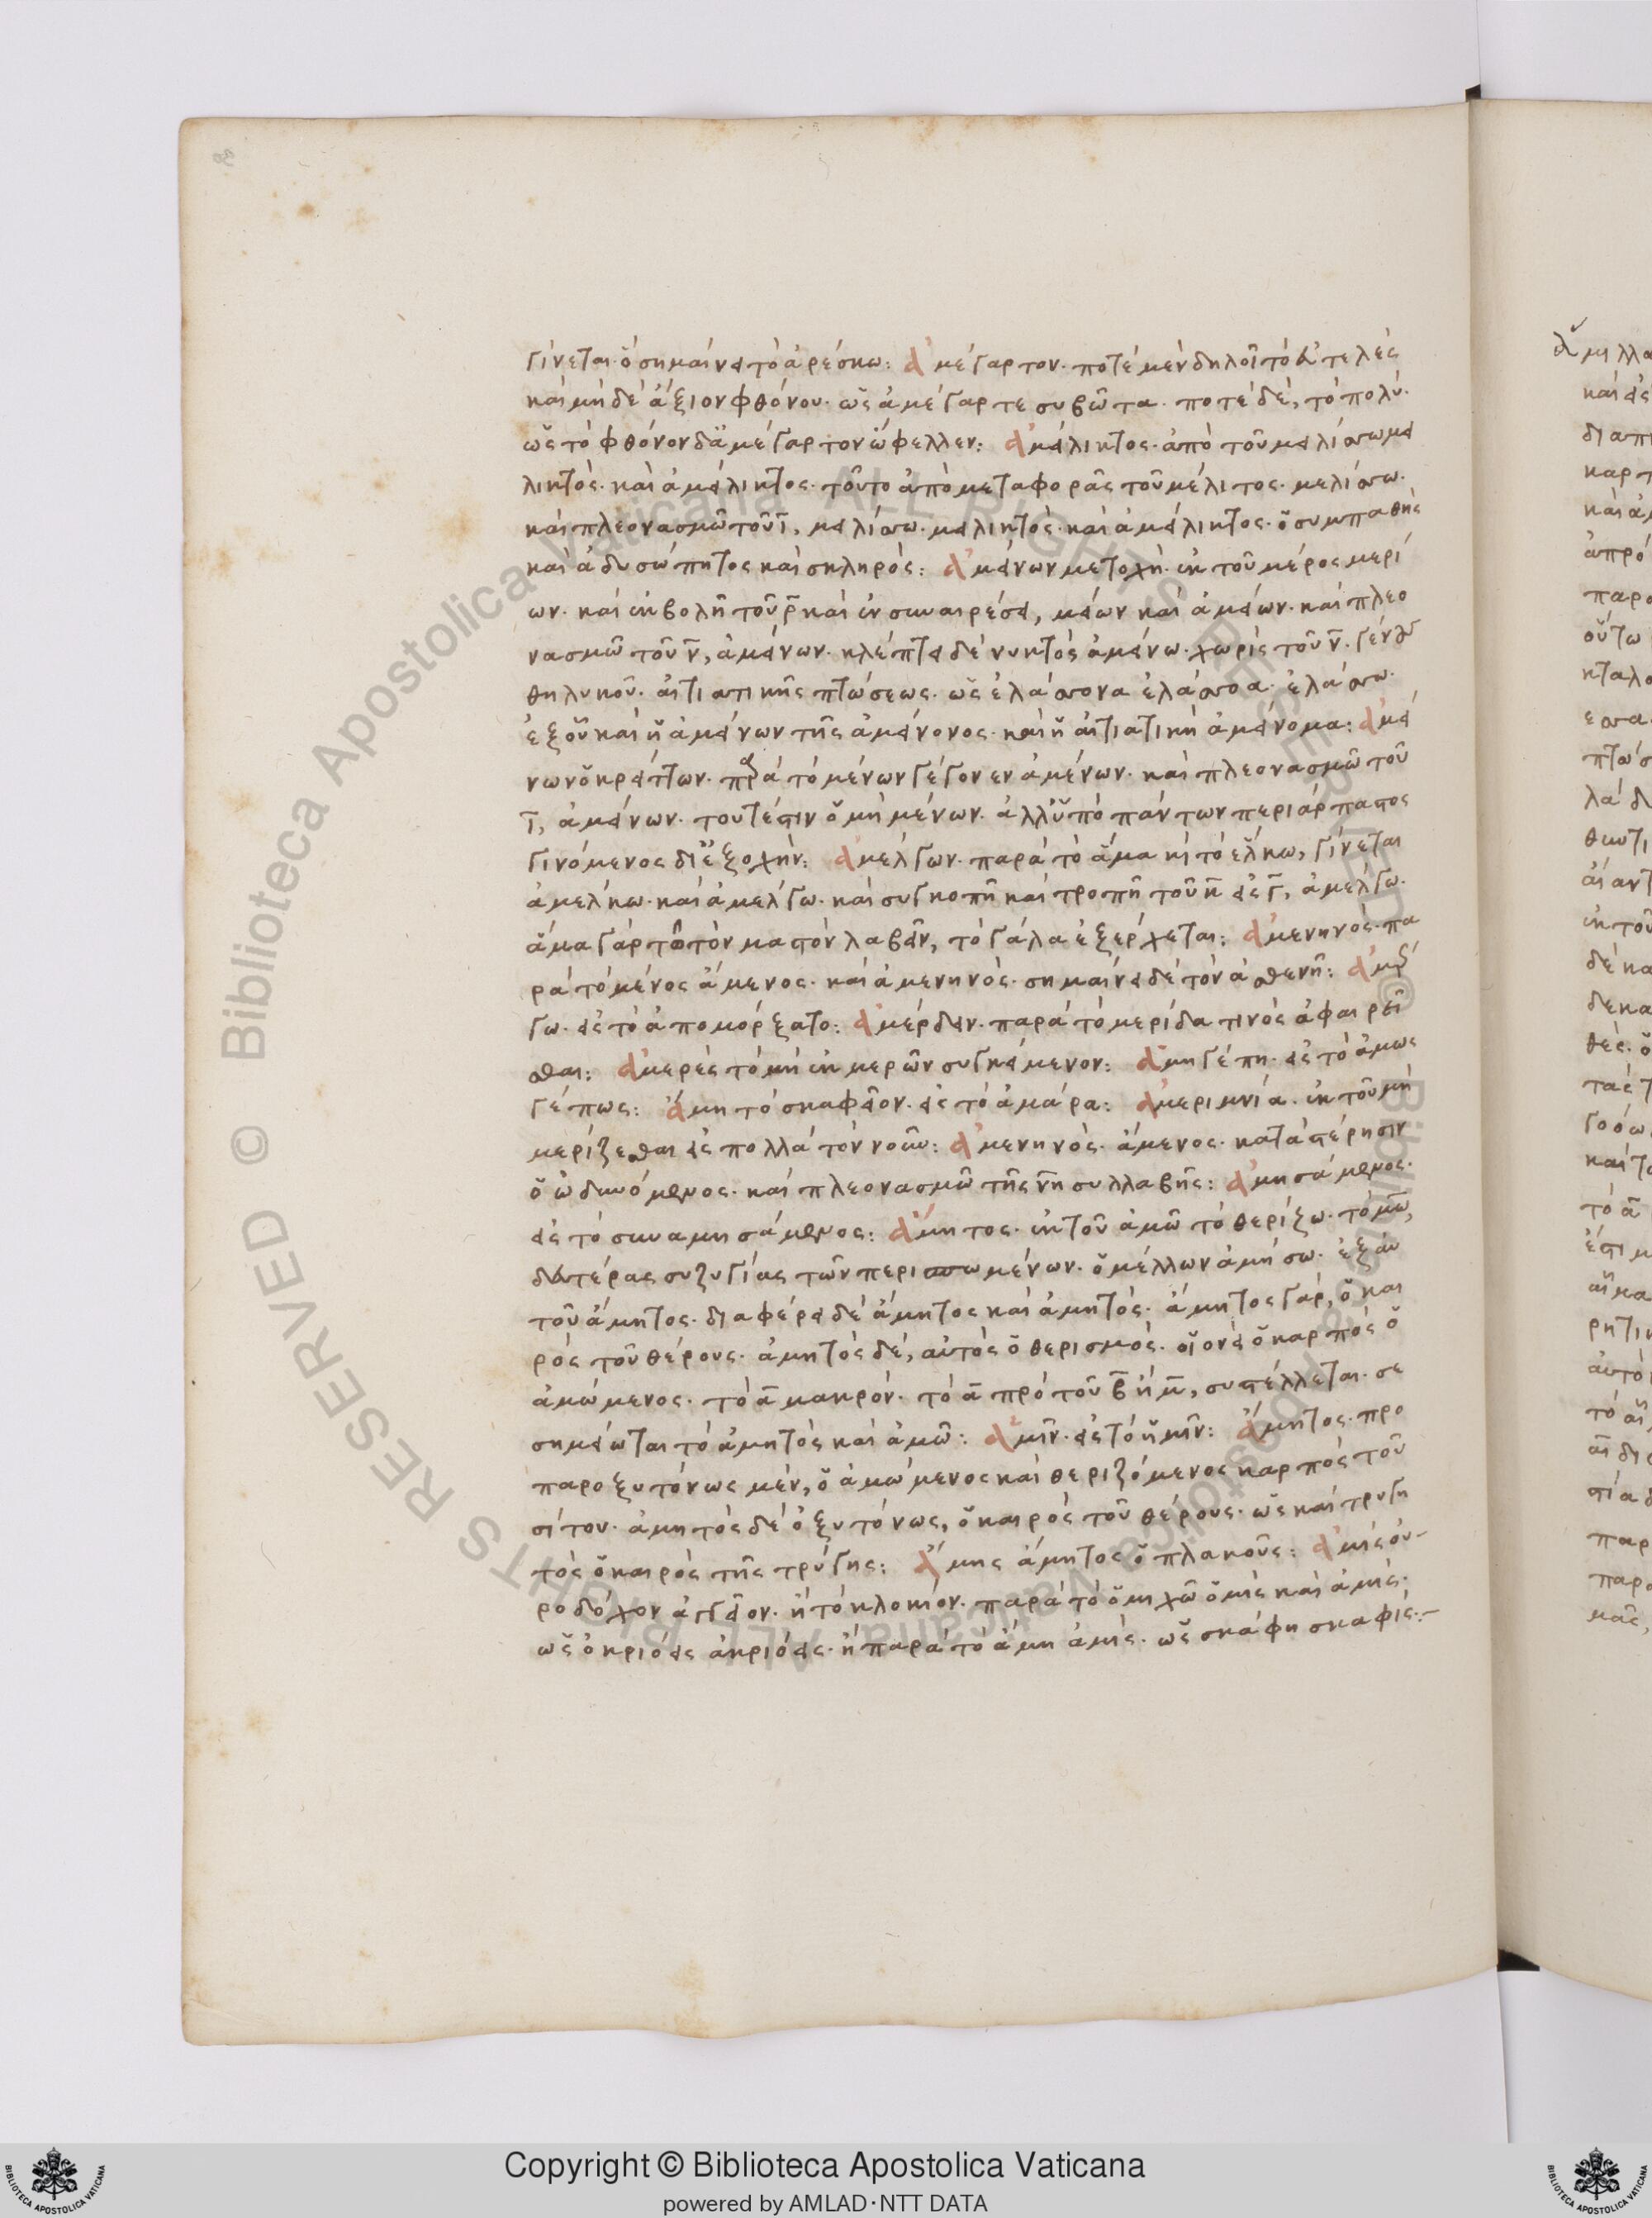 γίνεται· ὃ σημαίνει τὸ ἀρέσκω: ἀμέγαρτον· ποτὲ μὲν δηλοῖ τὸ ἀτελὲς
καὶ μὴ δὲ ἄξιον φθόνου· ὡς ἀμέγαρτε συβῶτα· ποτὲ δὲ, τὸ πολύ·
ὡς τὸ φθόνον δ' ἀμέγαρτον ὤφελλεν: ἀμείλικτος· ἀπὸ τοῦ μειλίσσω μει
λικτὸς· καὶ ἀμείλικτος· τοῦτο ἀπὸ μεταφορᾶς τοῦ μέλιτος· μελίσσω·
καὶ πλεονασμῶ τοῦ ι, μειλίσσω· μειλικτὸς· καὶ ἀμείλικτος· ὁ συμπαθὴς
καὶ ἀδυσώπητος καὶ σκληρὸς: ἀμείνων μετοχὴ· ἐκ τοῦ μέρος μερί
ων· καὶ ἐκβολῆ τοῦ ρ καὶ ἐν συναιρέσει, μείων καὶ ἀμείων· καὶ πλεο
νασμῶ τοῦ ν, ἀμείνων· κλέπτει δὲ νυκτὸς ἀμείνω· χωρὶς τοῦ ν· γένους
θηλυκοῦ· αἰτιατικῆς πτώσεως· ὡς ἐλάσσονα ἐλάσσοα· ἐλάσσω·
ἐξ οὗ καὶ ἡ ἀμείνων τῆς ἀμείνονος· καὶ ἡ αἰτιατικὴ ἀμείνομα: ἀμεί
νων ὁ κρείττων· παρὰ τὸ μένων γέγονεν ἀμένων· καὶ πλεονασμῶ τοῦ
ι, ἀμείνων· τουτέστιν ὁ μὴ μένων· ἀλλ' ὑπὸ πάντων περιάρπαστος
γινόμενος δι' ἐξοχὴν: ἀμέλγων· παρὰ τὸ ἅμα κὶ τὸ ἕλκω, γίνεται
ἀμελκω· καὶ ἀμέλγω· καὶ συγκοπῆ καὶ τροπῆ τοῦ κ εἰς γ, ἀμέλγω·
ἅμα γὰρ τὸν μαστὸν λαβεῖν, τὸ γάλα ἐξέρχεται: ἀμενηνὸς· πα
ρὰ τὸ μένος ἄμενος· καὶ ἀμενηνὸς· σημαίνει δὲ τὸν ἀσθενῆ: ἀμέρ
γω· εἰς τὸ ἀπομόρξατο: ἀμέρδειν· παρὰ τὸ μερίδα τινὸς ἀφαιρεῖ
σθαι: ἀμερὲς τὸ μὴ ἐκ μερῶν συγκείμενον: ἀμηγέπη· εἰς τὸ ἀμως
γέπως: ἄμη τὸ σκαφεῖον· εἰς τὸ ἀμάρα: ἀμεριμνία· ἐκ τοῦ μὴ
μερίζεσθαι εἰς πολλὰ τὸν νοῦν: ἀμενηνὸς· ἄμενος· κατὰ στέρησιν
ὁ ὠδυνόμενος· καὶ πλεονασμῶ τῆς νη συλλαβῆς: ἀμησάμενος·
εἰς τὸ συναμησάμενος: ἄμητος· ἐκ τοῦ ἀμῶ τὸ θερίζω· τὸ μῶ,
δευτέρας συζυγίας τῶν περισπωμένων· ὁ μέλλων ἀμήσω· ἐξ αὐ
τοῦ ἄμητος· διαφέρει δὲ ἄμητος καὶ ἀμητός· ἄμητος γὰρ, ὁ και
ρὸς τοῦ θέρους· ἀμητὸς δὲ, αὐτὸς ὁ θερισμὸς· οἱονεὶ ὁ καρπὸς ὁ
ἀμώμενος· τὸ α μακρόν· τὸ α πρὸ τοῦ β ἢ μ, συστέλλεται· σε
σημείωται τὸ ἀμητὸς καὶ ἀμῶ: ἀμῖν· εἰς τὸ ἡμῖν: ἄμητος· προ
παροξυτόνως μὲν, ὁ ἀμώμενος καὶ θεριζόμενος καρπὸς τοῦ
σίτου· ἀμητὸς δὲ ὀξυτόνως, ὁ καιρὸς τοῦ θέρους· ὡς καὶ τρυγη
τὸς ὁ καιρὸς τῆς τρύγης: ἄμης ἄμητος ὁ πλακοῦς: ἀμὶς οὐ-
ροδόχον ἀγγεῖον· ἢ τὸ κλοκίον· παρὰ τὸ ὀμιχῶ ὀμὶς καὶ ἀμὶς·
ὡς ὀκριόεις ἀκριόεις· ἢ παρὰ τὸ ἄμη ἀμὶς· ὡς σκάφη σκαφὶς:-
Copyright © Biblioteca Apostolica Vaticana
powered by AMLAD·NTT DATA